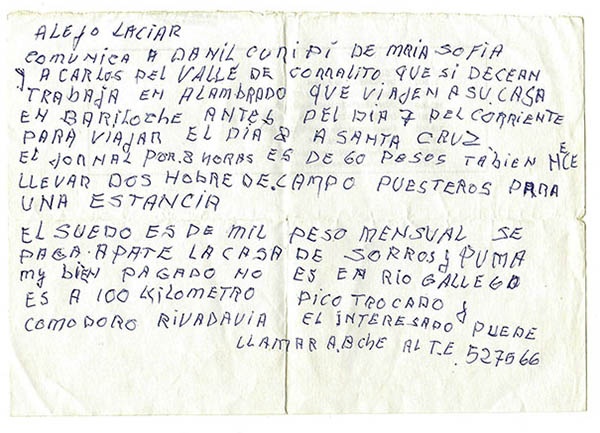 ALEJO LACIAR
COMUNICA A DANIL CURIPÍ DE MRIA SOFIA
Y A CARLOS DEL VALLE DE CORRALITO QUE SI DECEAN
TRABAJA EN ALAMBRADO QUE VIAJEN A SU CASA
EN BARILOCHE ANTES DEL DIA 7 DEL CORRIENTE
PARA VIAJAR EL DÍA 8 A SANTA CRUZ.
EL JORNAL POR 8 HORAS ES DE 60 PESOS TABIEN HCE
LLEVAR DOS HOBRE DE CAMPO PUESTEROS PARA
UNA ESTANCIA
EL SUEDO ES DE MIL PESO MENSUAL SE
PAGA. APATE LA CASA DE SORROS y PUMA
my BIEN PAGADO NO ES EN RIO GALLEGO
ES A 100 KILOMETRO PICO TROCADO y
COMODORO RIVADAVIA EL INTERESADO PUEDE
LLAMAR A.BCHE AL T.E. 527566